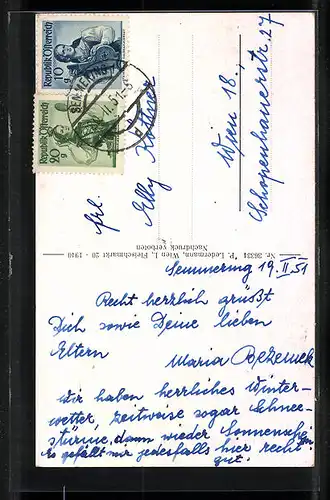 Republik Österreich
10 g
Republik Österreich
20 g
SEMMERING
Frl.
Elly
Wien 18,
Schopenhauerstr. 27
Nr. 36331 P. Ledermann, Wien I., Fleischmarkt 20 - 1910
Nachdruck verboten
Semmering 19.II.51
Recht herzlich grüßt
Dich sowie Deine lieben
Eltern
Maria Bezemek
Wir haben herrliches Winter-
wetter, zeitweise sogar Schnee-
stürme, dann wieder Sonnenschein
Es gefällt mir jedesfalls hier recht
gut.